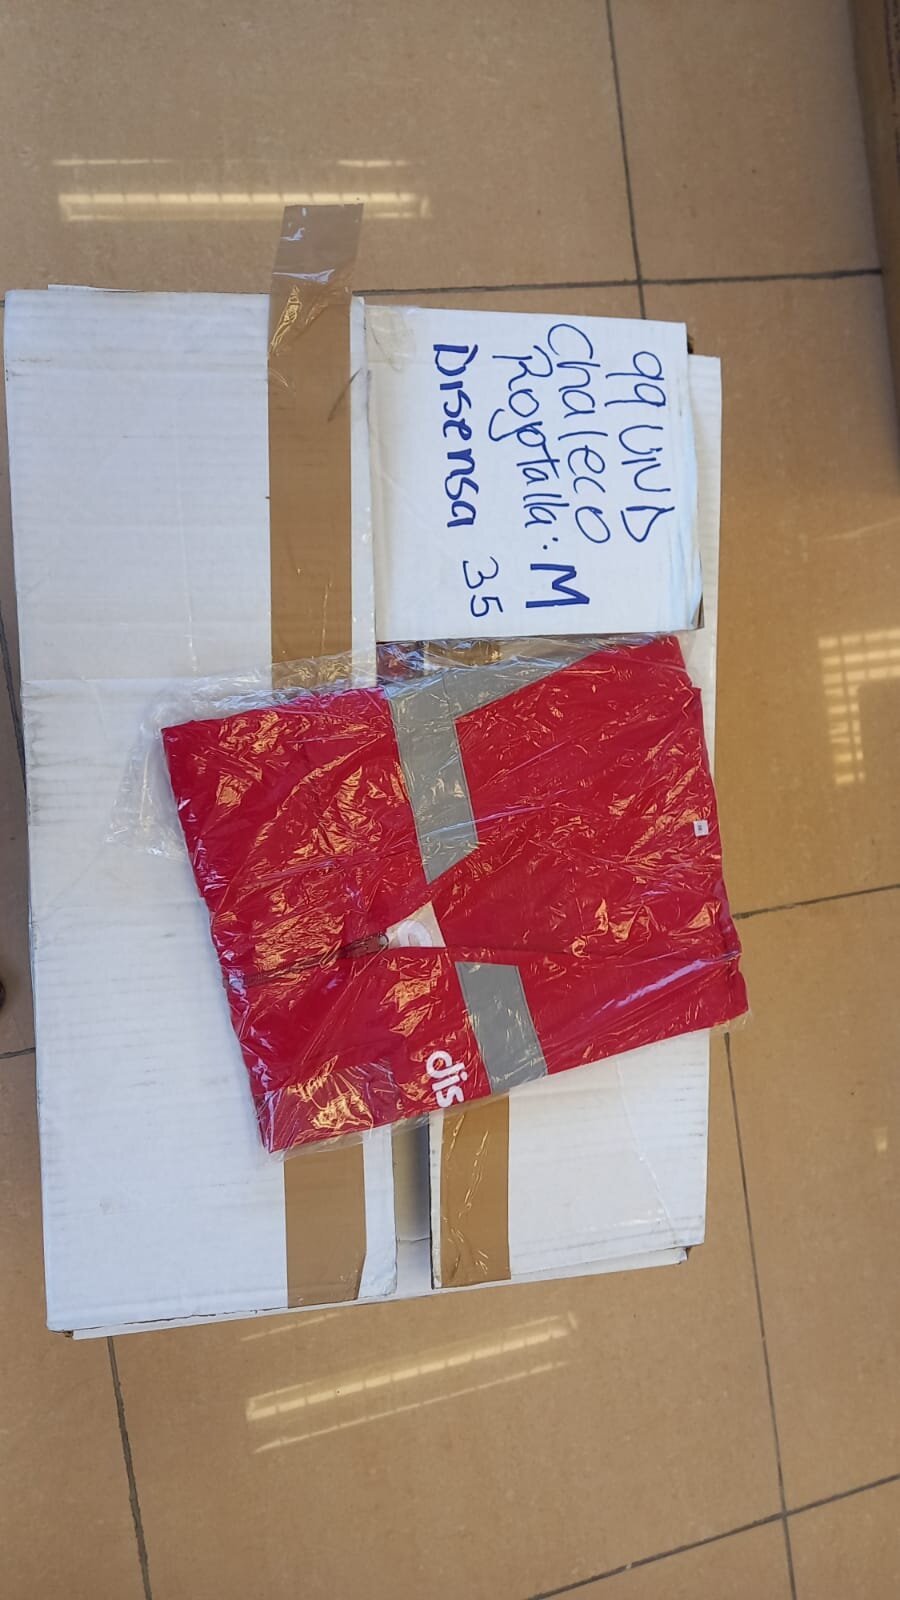 99 UND
Chaleco
Rojo talla: M
Disensa 35
dis